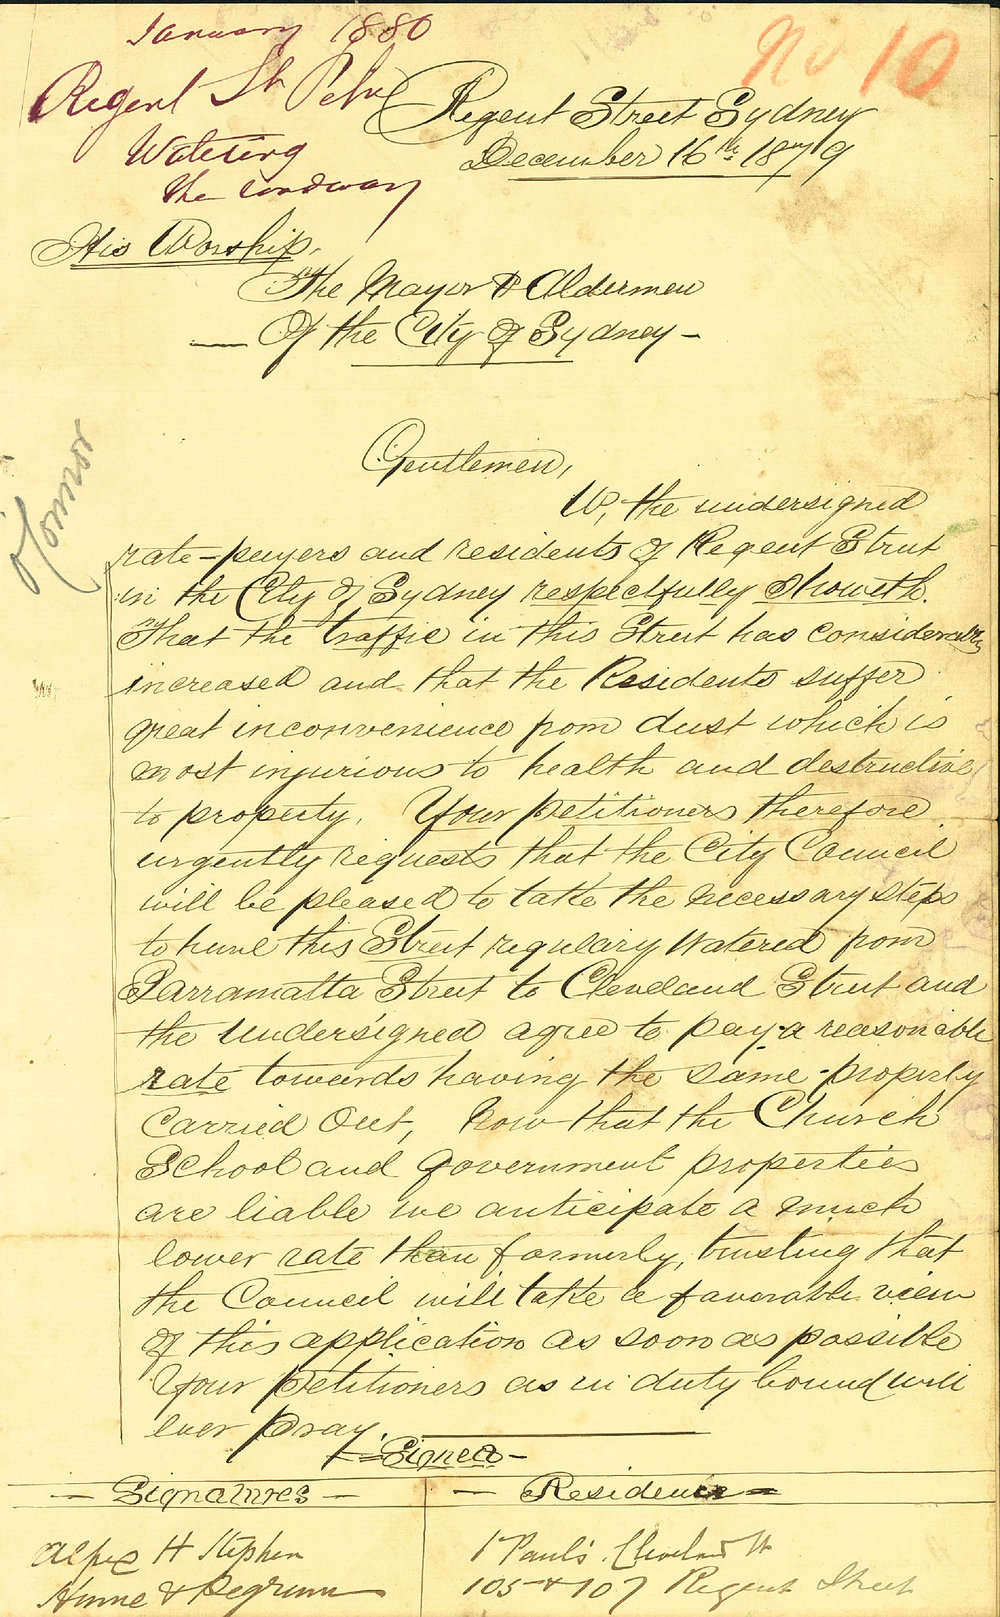 January 1880
No 10
Regent St Petn
Watering
the roadway
Regent Street Sydney
December 16th 1879
His Worship.
The Mayor & Aldermen
Of the City of Sydney -
O'Connor
Gentlemen,
We, the undersigned
rate-payers and residents of Regent Street
in the City of Sydney respectfully Showeth.
That the traffic in this Street has considerably
increased and that the Residents suffer
great inconvenience from dust which is
most injurious to health and destructive
to property. Your petitioners therefore
urgently requests that the City Council
will be pleased to take the necessary steps
to have this Street regulary Watered from
Parramatta Street to Cleveland Street and
the undersigned agree to pay a reasonable
rate towards having the same properly
Carried Out, Now that the Church
School and Government properties
are liable we anticipate a much
lower rate than formerly, trusting that
the Council will take a favorable view
of this application as soon as possible
Your Petitioners as in duty bound will
ever pray.
Signed -
- Signatures - - Residence -
Alfred H Stephen St Paul's Cleveland St
Hume & Pegrum 105 & 107 Regent Street